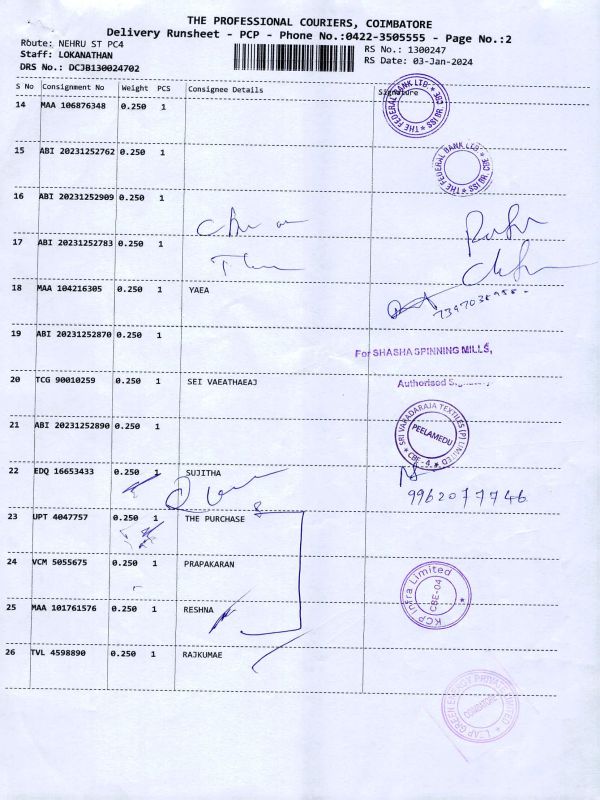 THE PROFESSIONAL COURIERS, COIMBATORE
Delivery Runsheet - PCP - Phone No.:0422-3505555 - Page No.:2
Route: NEHRU ST PC4
RS No.: 1300247
Staff: LOKANATHAN
RS Date: 03-Jan-2024
DRS No.: DCJB130024702
S No Consignment No Weight PCS Consignee Details Signature
14 MAA 106876348 0.250 1
THE FEDERAL BANK LTD * SSI BR. CBE *
15 ABI 20231252762 0.250 1
THE FEDERAL BANK LTD * SSI BR. CBE *
16 ABI 20231252909 0.250 1
17 ABI 20231252783 0.250 1
18 MAA 104216305 0.250 1 YAEA
19 ABI 20231252870 0.250 1
For SHASHA SPINNING MILLS,
20 TCG 90010259 0.250 1 SEI VAEATHAEAJ
Authorised
21 ABI 20231252890 0.250 1
SRI VARADARAJA TEXTILES (P) LIMITED * CBE - 4. *
PEELAMEDU
22 EDQ 16653433 0.250 1 SUJITHA
9962077746
23 UPT 4047757 0.250 1 THE PURCHASE
24 VCM 5055675 0.250 1 PRAPAKARAN
KCP Infra Limited *
CBE-04
25 MAA 101761576 0.250 1 RESHNA
26 TVL 4598890 0.250 1 RAJKUMAE
LEAP GREEN ENERGY PRIVATE LIMITED *
COIMBATORE